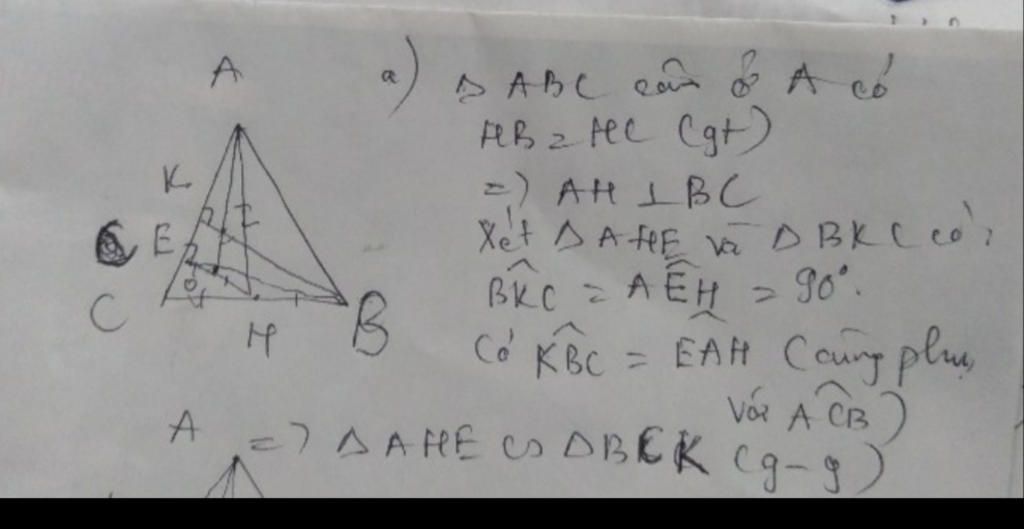 A
K
E
C
H
B
O
I
a) Δ ABC cân ở A có
HB = HC (gt)
=> AH ⊥ BC
Xét Δ AHE và Δ BKC có:
BKC = AÊH = 90°.
Có KBC = EAH (cùng phụ
với ACB)
=> Δ AHE ∽ Δ BCK (g-g)
A